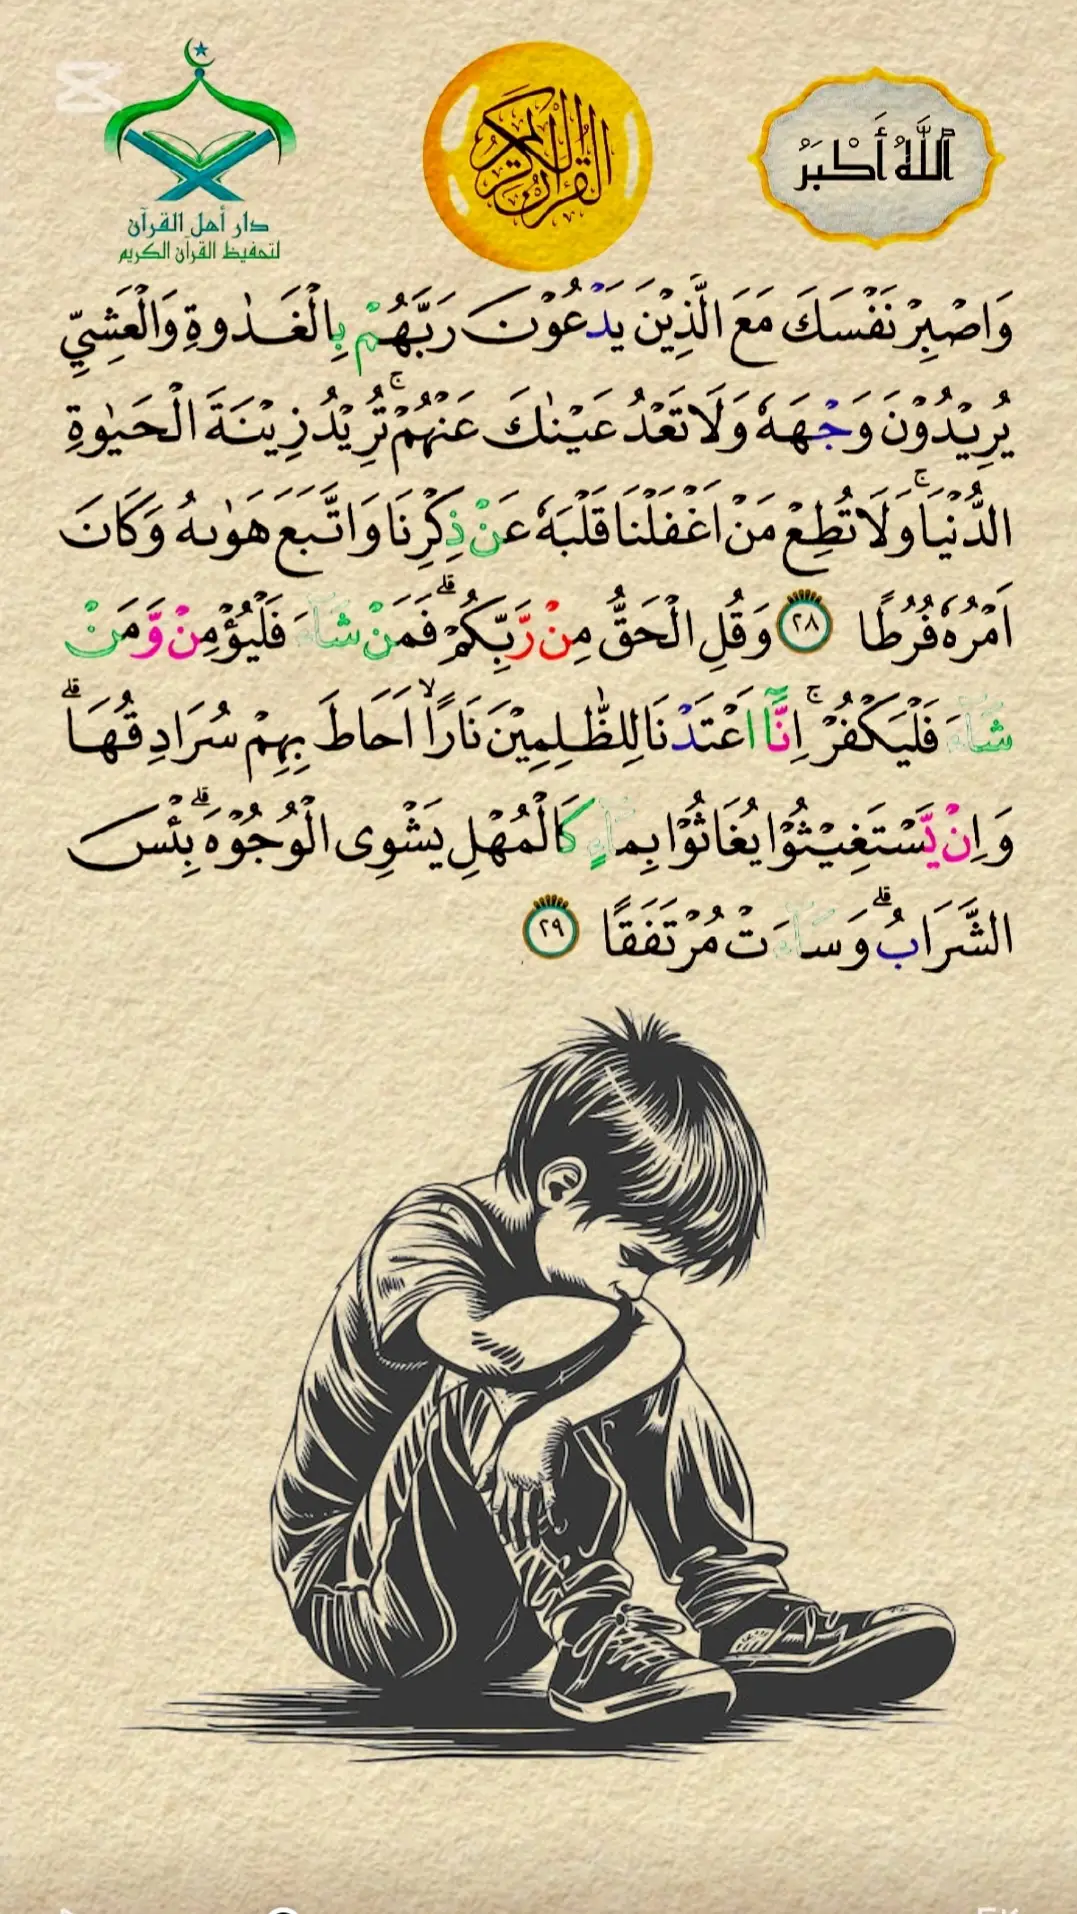 اَللّٰهُ أَكْبَرُ
القرآن الكريم
دار أهل القرآن
لتحفيظ القرآن الكريم
وَاصْبِرْ نَفْسَكَ مَعَ الَّذِيْنَ يَدْعُوْنَ رَبَّهُمْ بِالْغَدٰوةِ وَالْعَشِيِّ
يُرِيْدُوْنَ وَجْهَهٗ وَلَا تَعْدُ عَيْنٰكَ عَنْهُمْ ۚ تُرِيْدُ زِيْنَةَ الْحَيٰوةِ
الدُّنْيَا ۚ وَلَا تُطِعْ مَنْ اَغْفَلْنَا قَلْبَهٗ عَنْ ذِكْرِنَا وَاتَّبَعَ هَوٰىهُ وَكَانَ
اَمْرُهٗ فُرُطًا ٢٨ وَقُلِ الْحَقُّ مِنْ رَّبِّكُمْ ۗ فَمَنْ شَآءَ فَلْيُؤْمِنْ وَّمَنْ
شَآءَ فَلْيَكْفُرْ ۚ اِنَّآ اَعْتَدْنَا لِلظّٰلِمِيْنَ نَارًا ۙ اَحَاطَ بِهِمْ سُرَادِقُهَا ۗ
وَاِنْ يَّسْتَغِيْثُوْا يُغَاثُوْا بِمَآءٍ كَالْمُهْلِ يَشْوِى الْوُجُوْهَ ۗ بِئْسَ
الشَّرَابُ ۗ وَسَآءَتْ مُرْتَفَقًا ٢٩